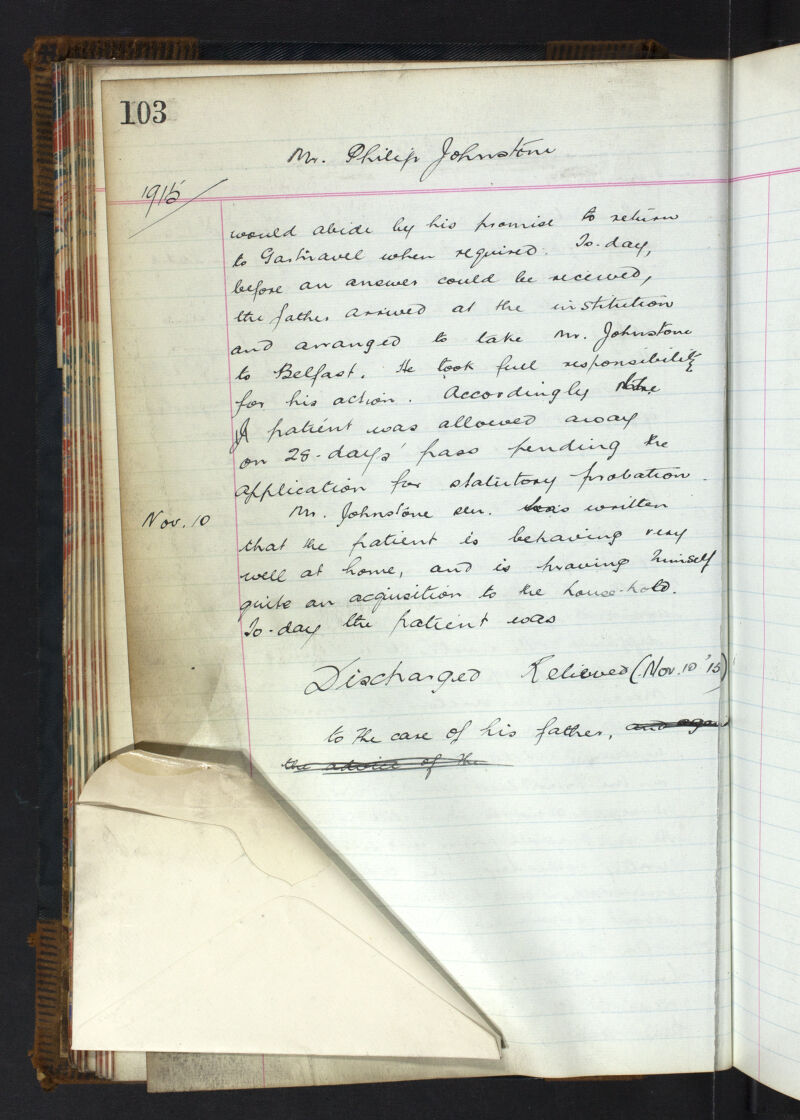 103
Mr. Philip Johnstone
1915
would abide by his promise to return
to Gartnavel when required. To-day,
before an answer could be received,
the father arrived at the institution
and arranged to take Mr. Johnstone
to Belfast. He took full responsibility
for his action. Accordingly the
patient was allowed away
on 28-days' pass pending the
application for statutory probation.
Nov. 10 Mr. Johnstone sen. has written
that the patient is behaving very
well at home, and is proving himself
quite an acquisition to the house-hold.
To-day the patient was
Discharged Relieved (Nov. 10 '15)
to the care of his father, and again
the advice of the